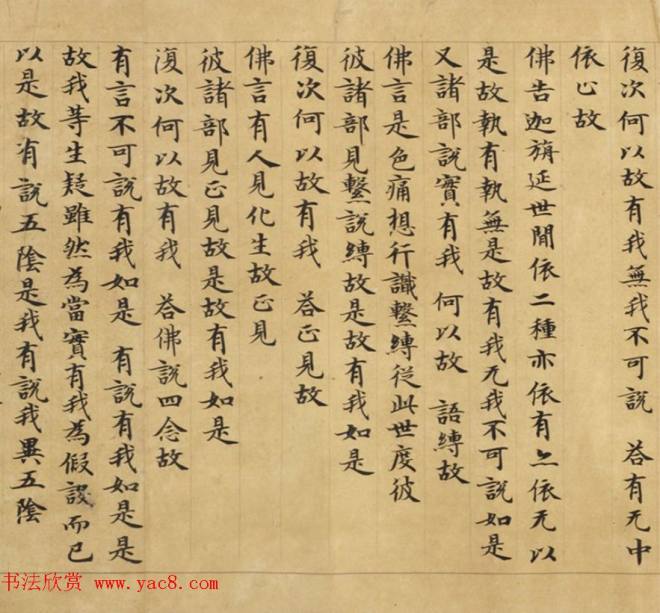 復次何以故有我無我不可說 荅有无中
依止故
佛告迦旃延世間依二種亦依有亦依无以
是故執有執無是故有我无我不可說如是
又諸部說實有我 何以故 語縛故
佛言是色痛想行識繫縛從此世度彼
彼諸部見繫說縛故是故有我如是
復次何以故有我 荅正見故
佛言有人見化生故正見
彼諸部見正見故是故有我如是
復次何以故有我 荅佛說四念故
有言不可說有我如是 有說有我如是是
故我等生疑雖然為當實有我為假設而已
以是故有說五陰是我有說我異五陰
书法欣赏 www.yac8.com